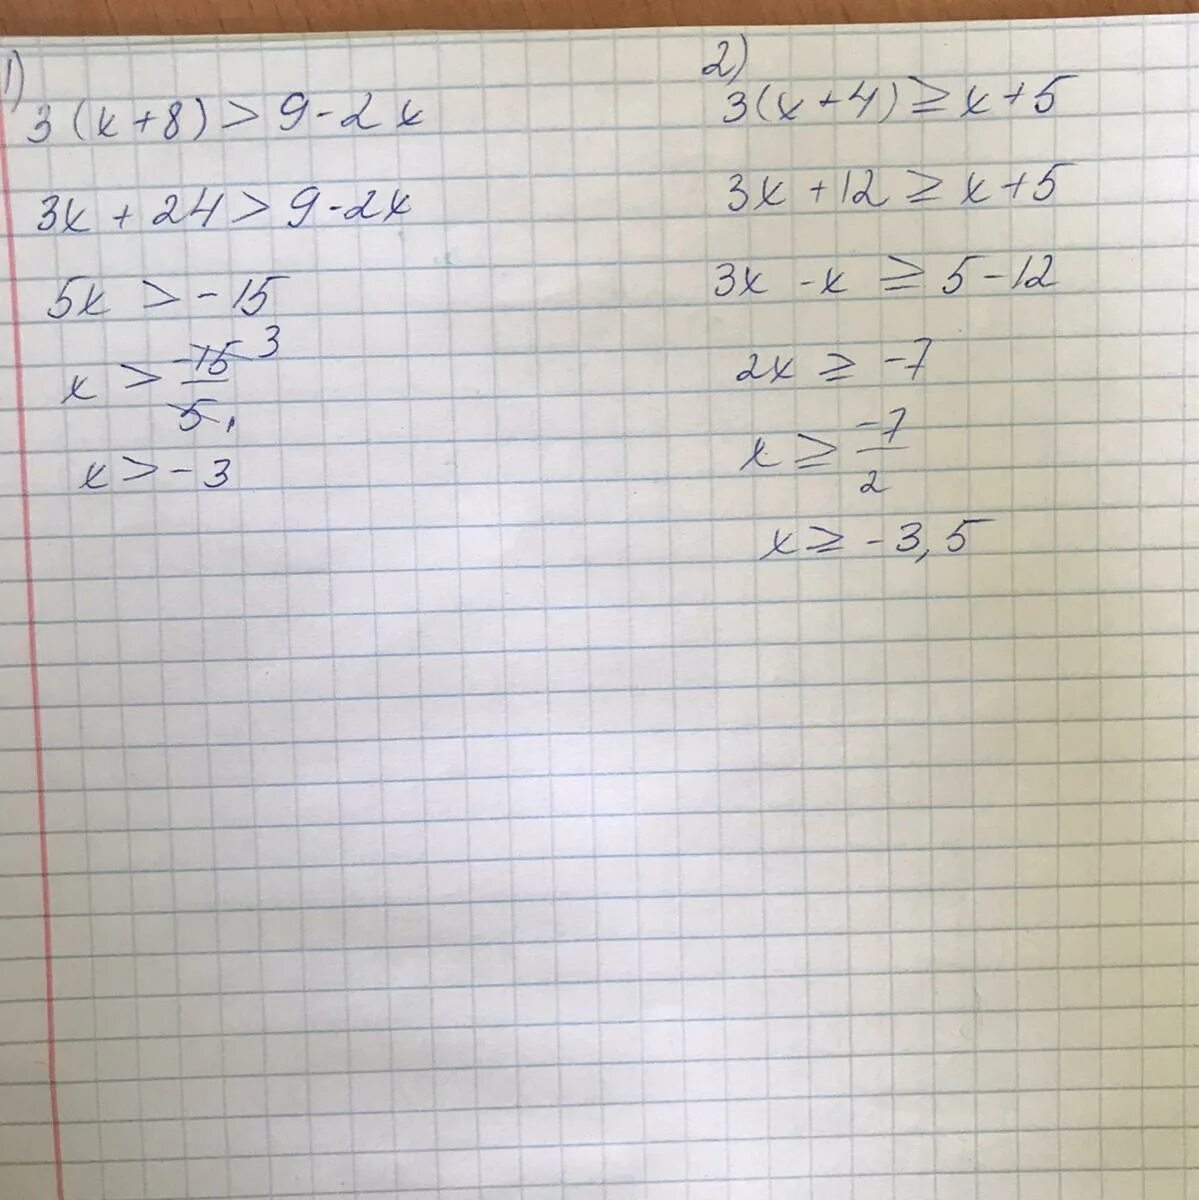 1)
3(x+8)>9-2x
3x+24>9-2x
5x>-15
x>-15/5 3 1
x>-3
2)
3(x+4)≥x+5
3x+12≥x+5
3x-x≥5-12
2x≥-7
x≥-7/2
x≥-3,5